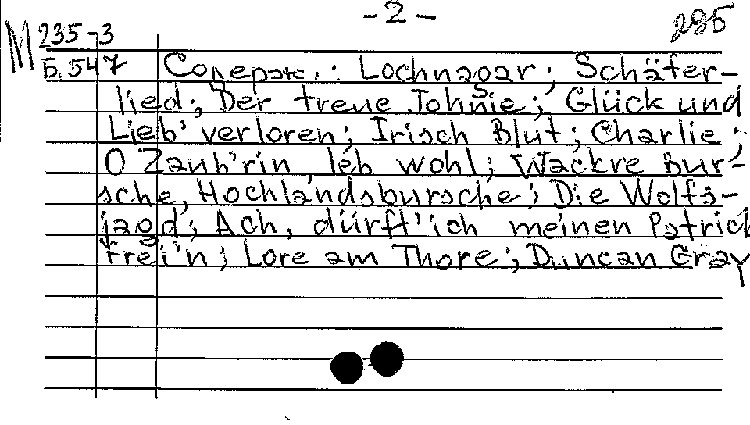 -2-
285
М 235-3
Б.547
Содерж.: Lochnagar; Schäfer-
lied; Der treue Johnie; Glück und
Lieb' verloren; Irisch Blut; Charlie;
O Zaub'rin, leb wohl; Wackre Bur-
sche, Hochlandsbursche; Die Wolfs-
jagd; Ach, dürft' ich meinen Patrick
frei'n; Lore am Thore; Duncan Gray